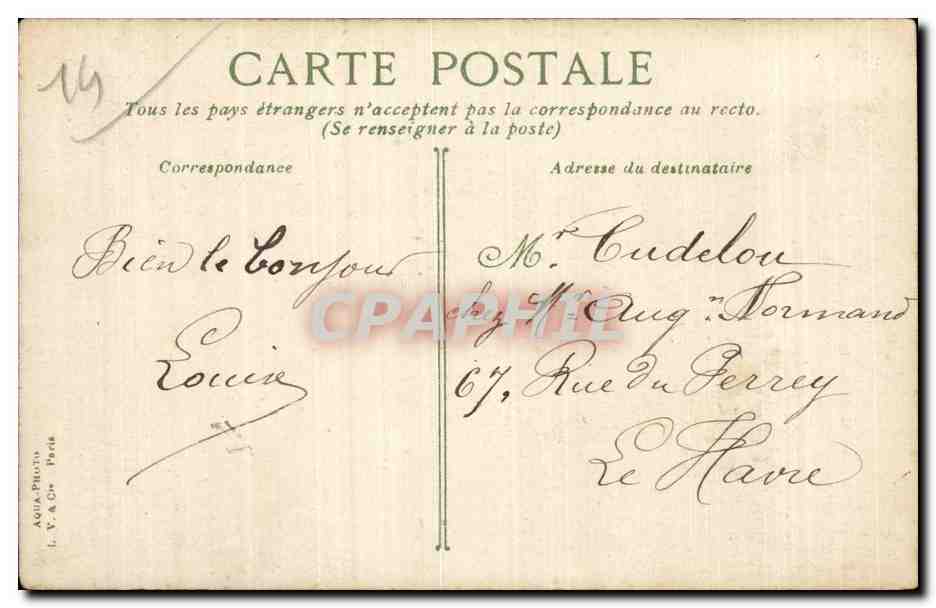 14
CARTE POSTALE
Tous les pays étrangers n'acceptent pas la correspondance au recto.
(Se renseigner à la poste)
Correspondance
Bien le bonjour
Louise
Adresse du destinataire
Mr. Cudelou
chez Mr Augn. Normand
67, Rue du Perrey
Le Havre
CPAPHIL
AQUA-PHOTO
L. V. & Cie Paris